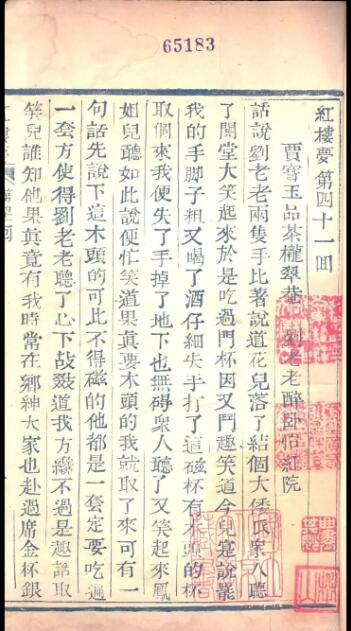 65183
紅樓夢第四十一回
賈寶玉品茶櫳翠菴 劉老老醉卧怡紅院
話說劉老老兩隻手比著說道花兒落了結個大倭瓜衆人聽
了閧堂大笑起來於是吃過門杯因又鬥趣笑道今兒寔說罷
我的手脚子粗又喝了酒仔細失手打了這磁杯有木頭的杯
取個來我便失了手掉了地下也無碍衆人聽了又笑起來鳳
姐兒聽如此說便忙笑道果真要木頭的我就取了來可有一
句話先說下這木頭的可比不得磁的他都是一套定要吃遍
一套方使得劉老老聽了心下敁敠道我方纔不過是趣話取
笑兒誰知他果真竟有我時常在鄉紳大家也赴過席金杯銀